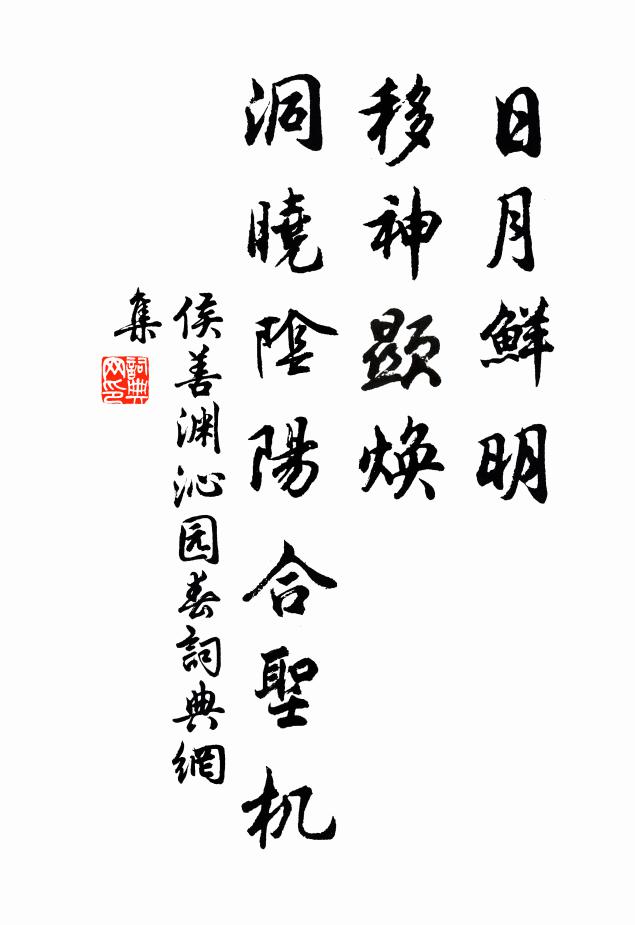 日月鮮明
移神顯煥
洞曉陰陽合聖机
侯善渊沁园春詞典網
集
詞典网印